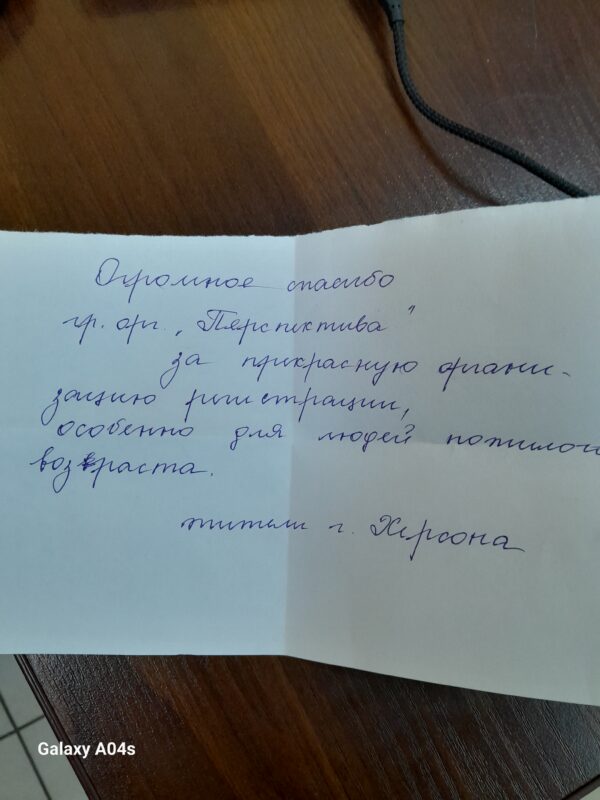 Огромное спасибо
гр. орг. „Перспектива"
за прекрасную органи-
зацию регистрации,
особенно для людей пожилого
возраста.
жители г. Херсона
Galaxy A04s